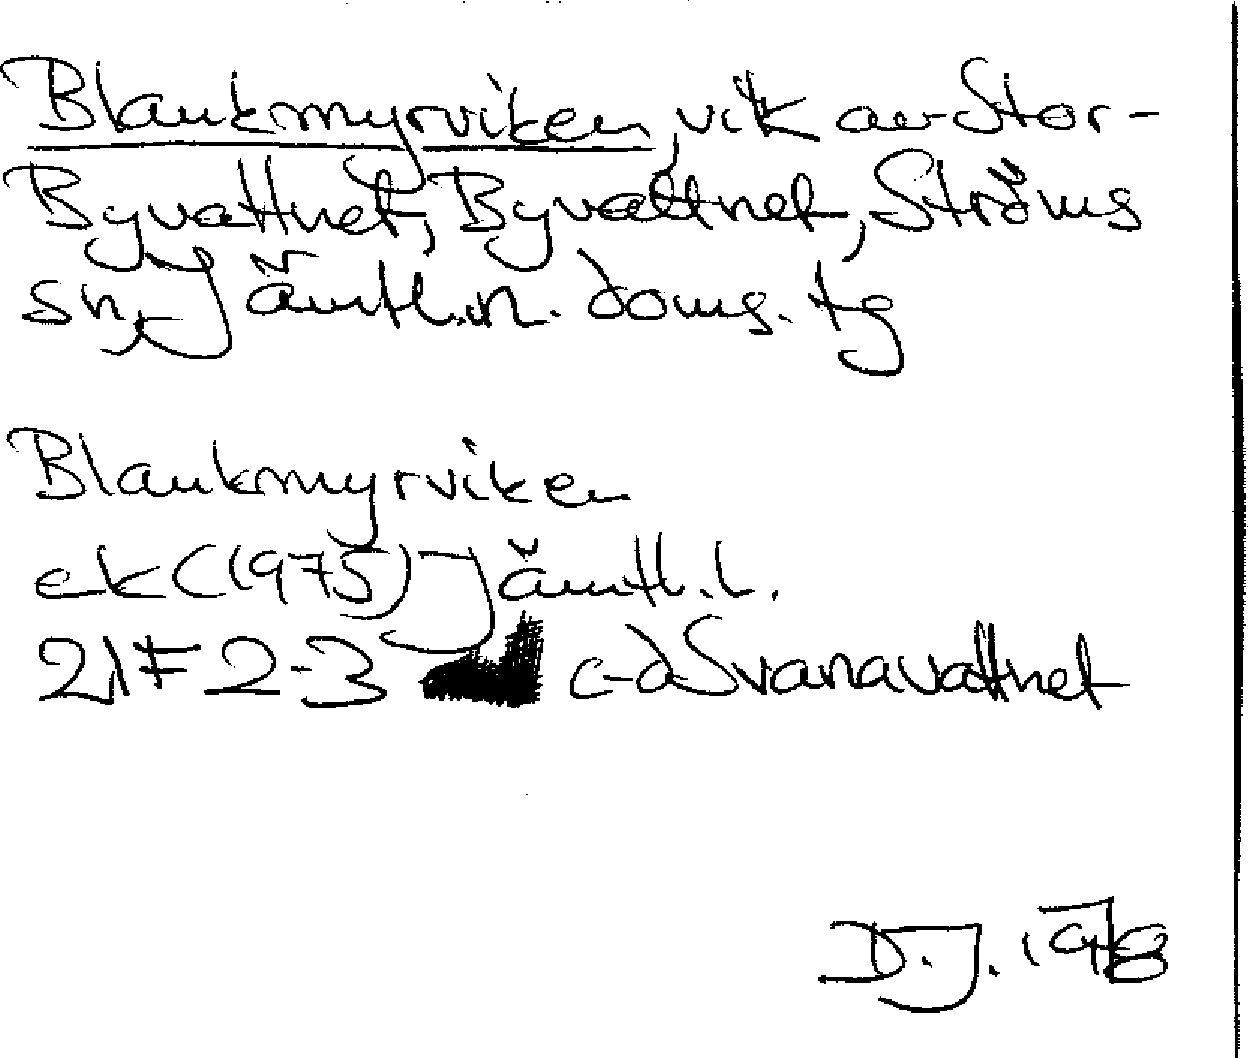 Blankmyrviken, vik av Stor-
Byvattnet, Byvattnet, Ströms
sn, Jämtl.n. doms. tg
Blankmyrviken
ek (1975) Jämtl.l.
21F 2-3 c-d Svanavattnet
D.J. 1978